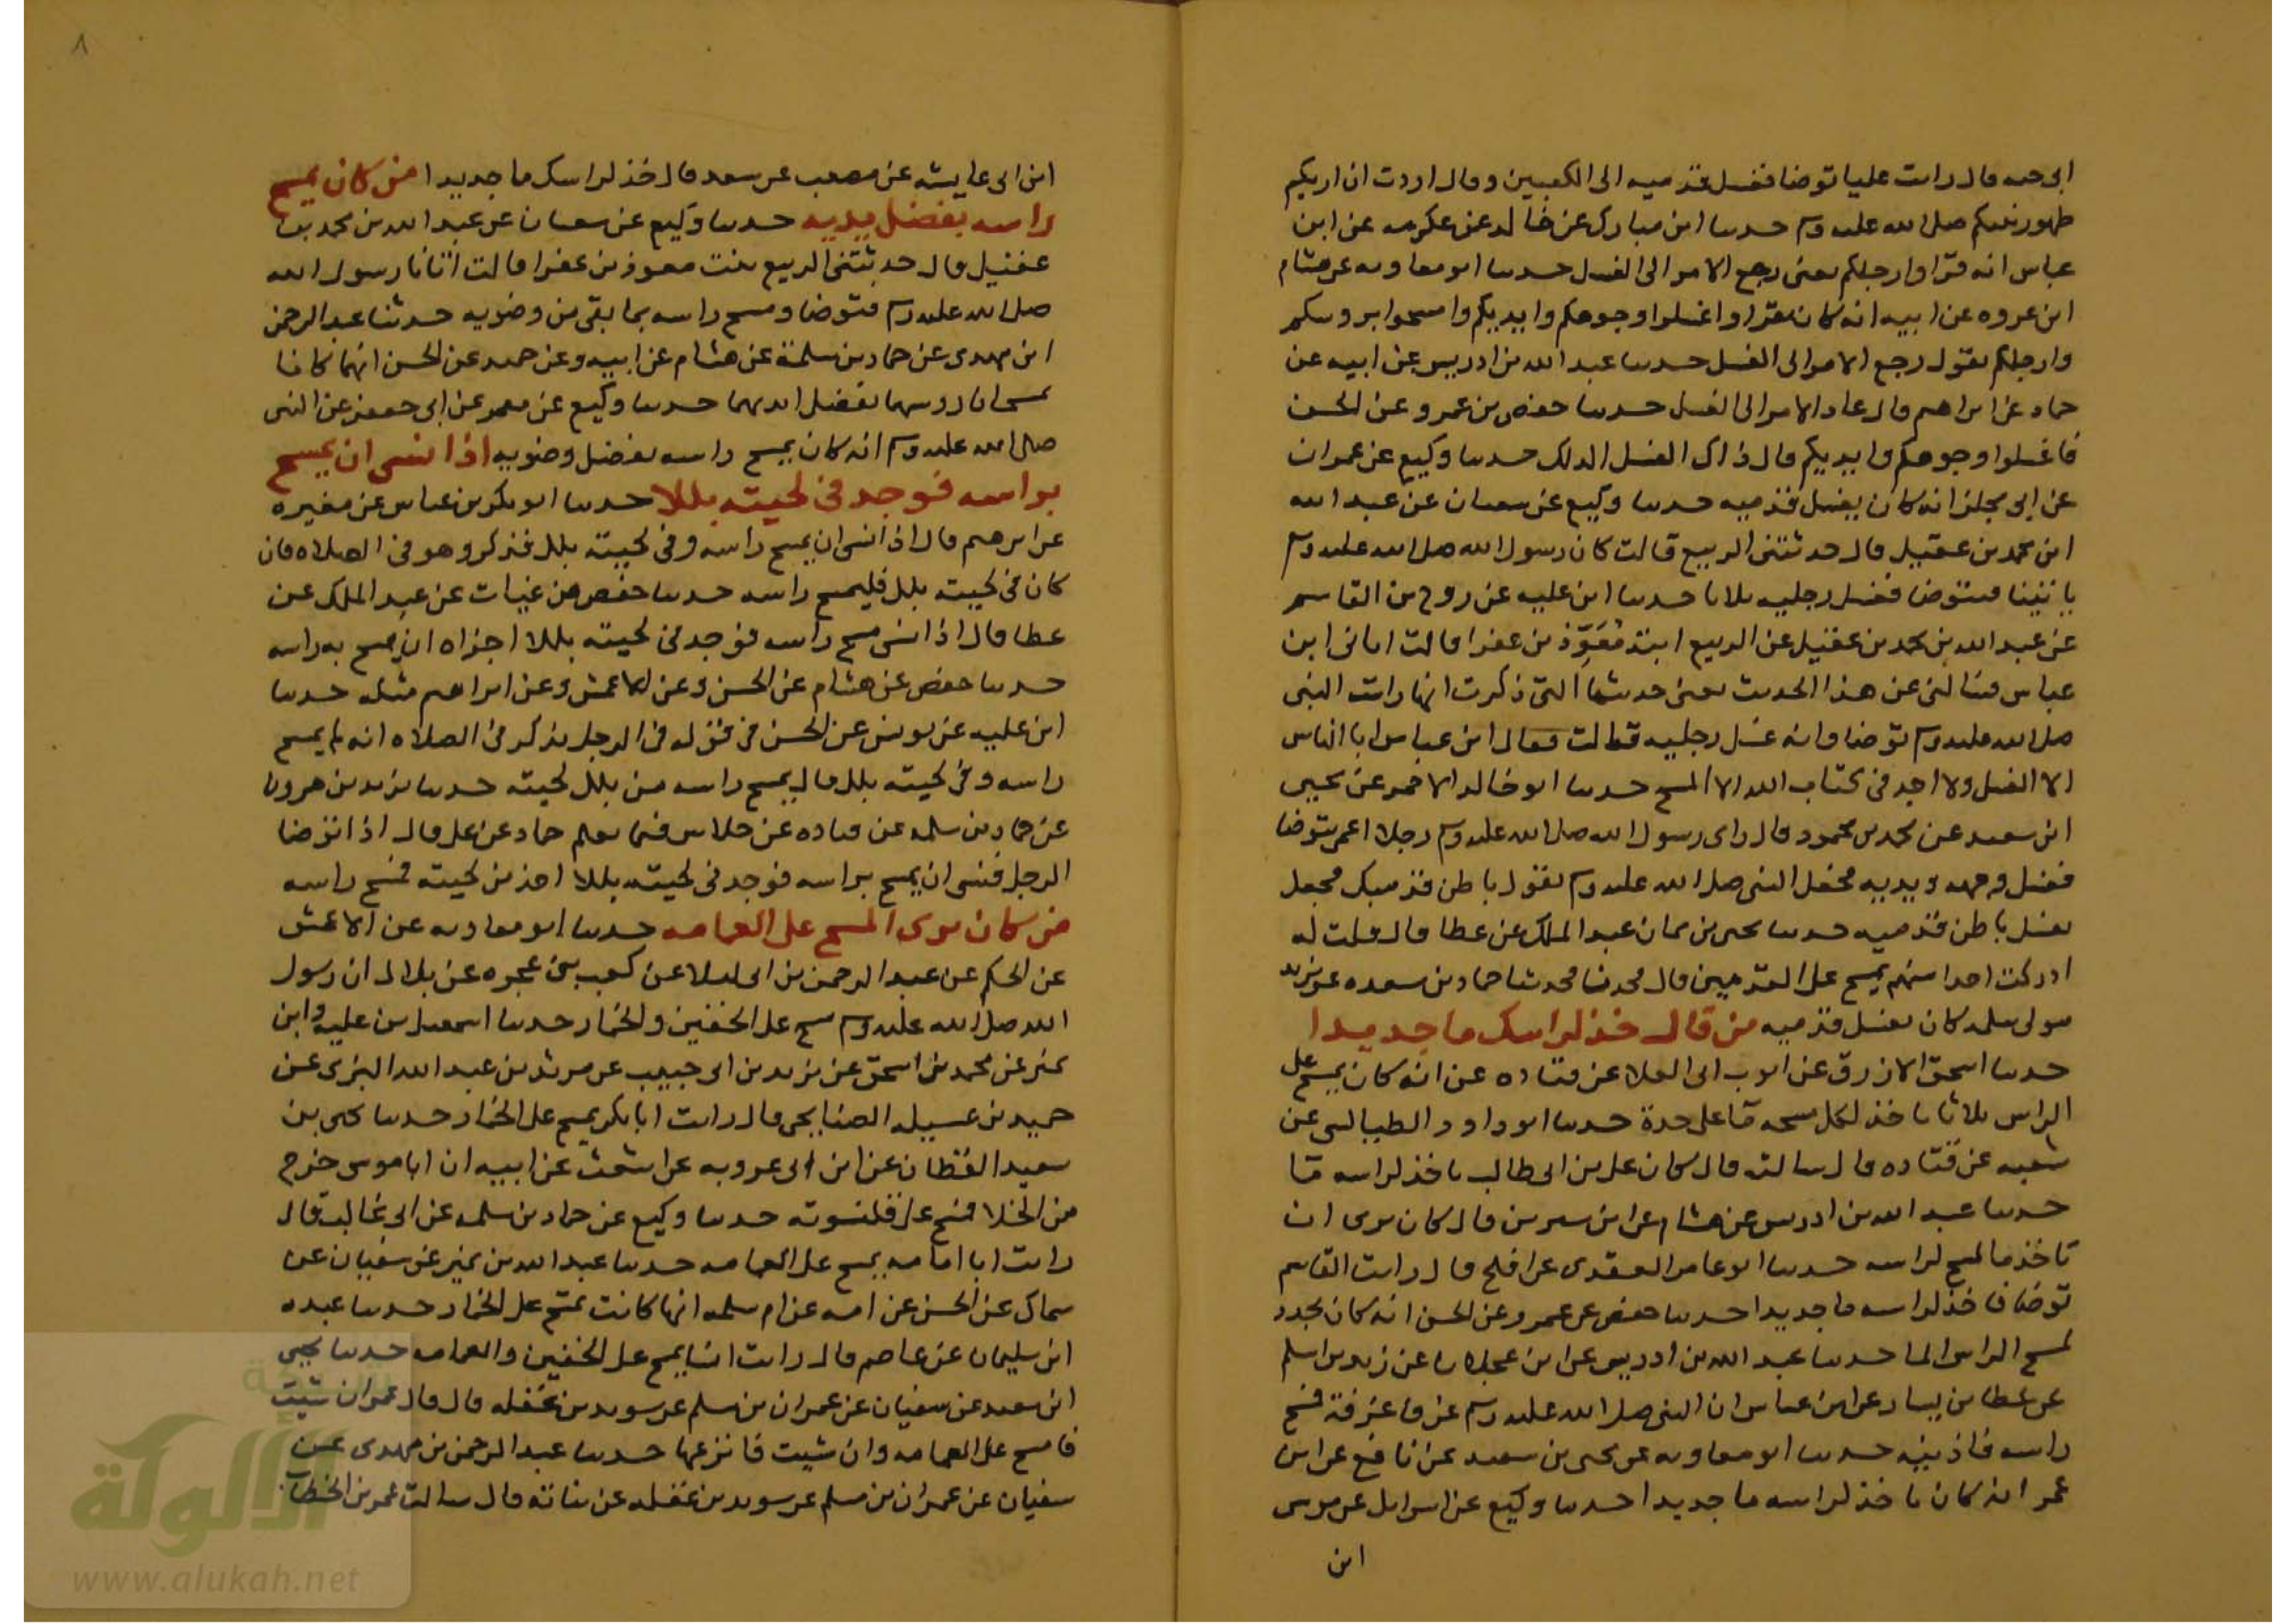 ابى حيه قال رايت عليا توضا فغسل قدميه الى الكعبين وقال اردت ان اريكم
طهور نبيكم صلى الله عليه وسلم حدثنا ابن مبارك عن خالد عن عكرمه عن ابن
عباس انه قرا وارجلكم يعنى رجع الامر الى الغسل حدثنا ابو معاويه عن هشام
ابن عروه عن ابيه انه كان يقرا واغسلوا وجوهكم وايديكم وامسحوا بروسكم
وارجلكم يقول رجع الامر الى الغسل حدثنا عبد الله بن ادريس عن ابيه عن
حماد عن ابراهيم قال عاد الامر الى الغسل حدثنا حفص بن عمرو عن الحسن
فاغسلوا وجوهكم وايديكم قال ذاك الغسل الدلك حدثنا وكيع عن عمران
عن ابى مجلز انه كان يغسل قدميه حدثنا وكيع عن سفيان عن عبد الله
ابن محمد بن عقيل قال حدثتنى الربيع قالت كان رسول الله صلى الله عليه وسلم
ياتينا فيتوضا فغسل رجليه ثلاثا حدثنا ابن عليه عن روح بن القاسم
عن عبد الله بن محمد بن عقيل عن الربيع ابنة مُعَوِّذ بن عفرا قالت اتانى ابن
عباس فسالنى عن هذا الحديث يعنى حديثها التى ذكرت انها رات النبى
صلى الله عليه وسلم توضا وانه غسل رجليه قالت فقال ابن عباس ابا الناس
الا الغسل ولا اجد فى كتاب الله الا المسح حدثنا ابو خالد الاحمر عن يحيى
ابن سعيد عن محمد بن محمود قال راى رسول الله صلى الله عليه وسلم رجلا اعمى يتوضا
فغسل وجهه ويديه فجعل النبى صلى الله عليه وسلم يقول باطن قدميك فجعل
يغسل باطن قدميه حدثنا يحيى بن يمان عن عبد الملك عن عطا قال قلت له
ادركت احدا منهم يمسح على القدمين قال محدثنا حماد بن مسعده عن يزيد
مولى سلمه كان يغسل قدميه من قال خذ لراسك ما جديدا
حدثنا اسحق الازرق عن ايوب ابى العلا عن قتاده عن انه كان يمسح على
الراس ثلاثا ياخذ لكل مسحه مآ على حدة حدثنا ابو داود الطيالسى عن
شعبه عن قتاده قال سالته قال كان على بن ابى طالب ياخذ لراسه مآ
حدثنا عبد الله بن ادريس عن هشام عن ابن سيرين قال كان يرى ان
تاخذ ما لمسح لراسه حدثنا ابو عامر العقدى عن افلح قال رايت القاسم
توضا فاخذ لراسه ما جديدا حدثنا حفص عن عمرو عن الحسن انه كان يجدد
لمسح الراس الما حدثنا عبد الله بن ادريس عن ابن عجلان عن زيد بن اسلم
عن عطا بن يسار عن ابن عباس ان النبى صلى الله عليه وسلم غرف غرفة فمسح
راسه واذنيه حدثنا ابو معاويه عن يحيى بن سعيد عن نافع عن ابن
عمر انه كان ياخذ لراسه ما جديدا حدثنا وكيع عن اسرائل عن موسى
ابن
٨
ابن ابى عايشه عن مصعب عن سعد قال خذ لراسك ما جديدا من كان يمسح
راسه بفضل يديه حدثنا وكيع عن سفيان عن عبد الله بن محمد بن
عقيل قال حدثتنى الربيع بنت معوذ بن عفرا قالت اتانا رسول الله
صلى الله عليه وسلم فتوضا ومسح راسه بما بقى من وضويه حدثنا عبد الرحمن
ابن مهدى عن حماد بن سلمة عن هشام عن ابيه وعن حميد عن الحسن انهما كانا
يمسحان روسهما بفضل ايديهما حدثنا وكيع عن معمر عن ابى جعفر عن النبى
صلى الله عليه وسلم انه كان يمسح راسه بفضل وضويه اذا نسى ان يمسح
براسه فوجد فى لحيته بللا حدثنا ابو بكر بن عياش عن مغيره
عن ابرهيم قال اذا نسى ان يمسح راسه وفى لحيته بلل فذكر وهو فى الصلاه فان
كان فى لحيته بلل فليمسح راسه حدثنا حفص بن غياث عن عبد الملك عن
عطا قال اذا نسى مسح راسه فوجد فى لحيته بللا اجزاه ان يمسح به راسه
حدثنا حفص عن هشام عن الحسن وعن الاعمش وعن ابراهيم مثله حدثنا
ابن عليه عن يونس عن الحسن فى قوله فى الرجل يذكر فى الصلاه انه لم يمسح
راسه وفى لحيته بلل قال يمسح راسه من بلل لحيته حدثنا يزيد بن هرون
عن حماد بن سلمه عن قتاده عن خلاس فيما يعلم حماد عن على قال اذا توضا
الرجل فنسى ان يمسح براسه فوجد فى لحيته بللا اخذ من لحيته فمسح راسه
من كان يرى المسح على العمامه حدثنا ابو معاويه عن الاعمش
عن الحكم عن عبد الرحمن بن ابى ليلا عن كعب بن عجره عن بلال ان رسول
الله صلى الله عليه وسلم مسح على الخفين والخمار حدثنا اسمعيل بن عليه وابن
نمير عن محمد بن اسحق عن يزيد بن ابى حبيب عن مرثد بن عبد الله اليزنى عن
حميد بن عسيله الصنابحى قال رايت ابا بكر يمسح على الخمار حدثنا يحيى بن
سعيد القطان عن ابن ابى عروبه عن اشعث عن ابيه ان ابا موسى خرج
من الخلا فمسح على قلنسوته حدثنا وكيع عن حماد بن سلمه عن ابى غالب قال
رايت ابا امامه يمسح على العمامه حدثنا عبد الله بن نمير عن سفيان عن
سماك عن الحسن عن امه عن ام سلمه انها كانت تمسح على الخمار حدثنا عبده
ابن سليمان عن عاصم قال رايت انسا يمسح على الخفين والعمامه حدثنا يحيى
ابن سعيد عن سفيان عن عمران بن مسلم عن سويد بن غفله قال قال عمر ان شيت
فامسح على العمامه وان شيت فانزعها حدثنا عبد الرحمن بن مهدى عن
سفيان عن عمران بن مسلم عن سويد بن غفله عن نباته قال سالت عمر بن الخطاب
شبكة
الألوكة
www.alukah.net